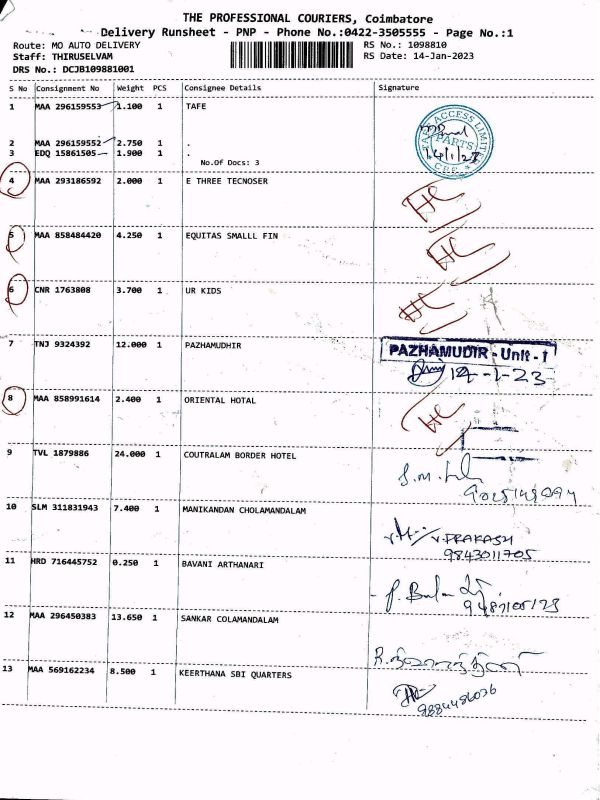 THE PROFESSIONAL COURIERS, Coimbatore
Delivery Runsheet - PNP - Phone No.:0422-3505555 - Page No.:1
Route: MO AUTO DELIVERY RS No.: 1098810
Staff: THIRUSELVAM RS Date: 14-Jan-2023
DRS No.: DCJB109881001
S No Consignment No Weight PCS Consignee Details Signature
1 MAA 296159553 1.100 1 TAFE
2 MAA 296159552 2.750 1 .
3 EDQ 15861505 1.900 1 .
No.Of Docs: 3
PARTS
4 MAA 293186592 2.000 1 E THREE TECNOSER
5 MAA 858484420 4.250 1 EQUITAS SMALLL FIN
6 CNR 1763808 3.700 1 UR KIDS
7 TNJ 9324392 12.000 1 PAZHAMUDHIR
PAZHAMUDIR - Unit - 1
14-1-23
8 MAA 858991614 2.400 1 ORIENTAL HOTAL
9 TVL 1879886 24.000 1 COUTRALAM BORDER HOTEL
10 SLM 311831943 7.400 1 MANIKANDAN CHOLAMANDALAM
V.PRAKASH
9843011705
11 HRD 716445752 0.250 1 BAVANI ARTHANARI
12 MAA 296450383 13.650 1 SANKAR COLAMANDALAM
13 MAA 569162234 8.500 1 KEERTHANA SBI QUARTERS